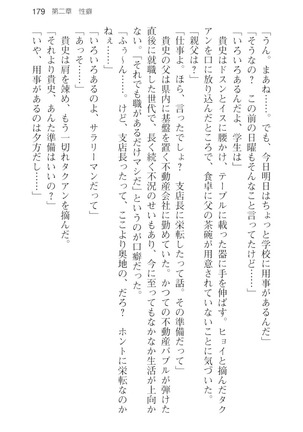 179　第二章　性癖
「うん。まあね……。でも、今日明日はちょっと学校に用事があるんだ」
「そうなの？　この前の日曜もそんなこと言ってたけど……」
「いろいろあるんだよ、学生は」
貴史はドスンとイスに腰かけ、テーブルに載った器に手を伸ばす。ヒョイと摘んだタク
アンを口に放り込んだところで、食卓に父の茶碗が用意されていないことに気づいた。
「親父は？」
「仕事よ。ほら、言ったでしょ？　支店長に栄転したって話。その準備だって」
貴史の父は県内に基盤を置く不動産会社に勤めていた。かつての不動産バブルが弾けた
直後に就職した世代で、長く続く不況のせいもあり、今に至ってもなかなか生活が上向か
ない。「それでも職があるだけマシだ」というのが口癖だった。
「ふぅ～ん……。けど、支店長ったって、ここより奥地の、だろ？　ホントに栄転なのか
ね」
「いろいろあるのよ、サラリーマンだって」
「あっそ……」
貴史は肩を竦め、もう一切れタクアンを摘んだ。
「それより貴史、あんた準備はいいの？」
「いや、用事があるのは夕方だし……」